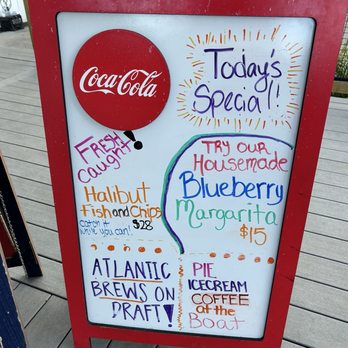 Coca-Cola
Today's
Special!
FRESH
caught!
Halibut
Fish and Chips
catch it
while you can! $28
TRY OUR
Housemade
Blueberry
Margarita
$15
ATLANTIC
BREWS ON
DRAFT!
PIE
ICECREAM
COFFEE
at the
Boat